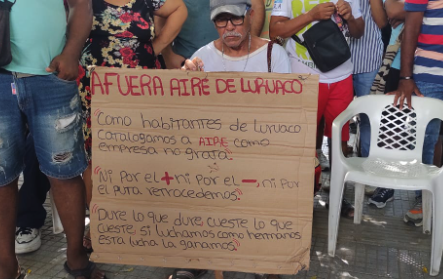 AFUERA AIRE DE LURUACO
Como habitantes de Luruaco
catalogamos a AIRE como
empresa no grata.
"Ni por el + ni por el −, ni por
el puta retrocedemos."
"Dure lo que dure, cueste lo que
cueste si luchamos como hermanos
esta lucha la ganamos"